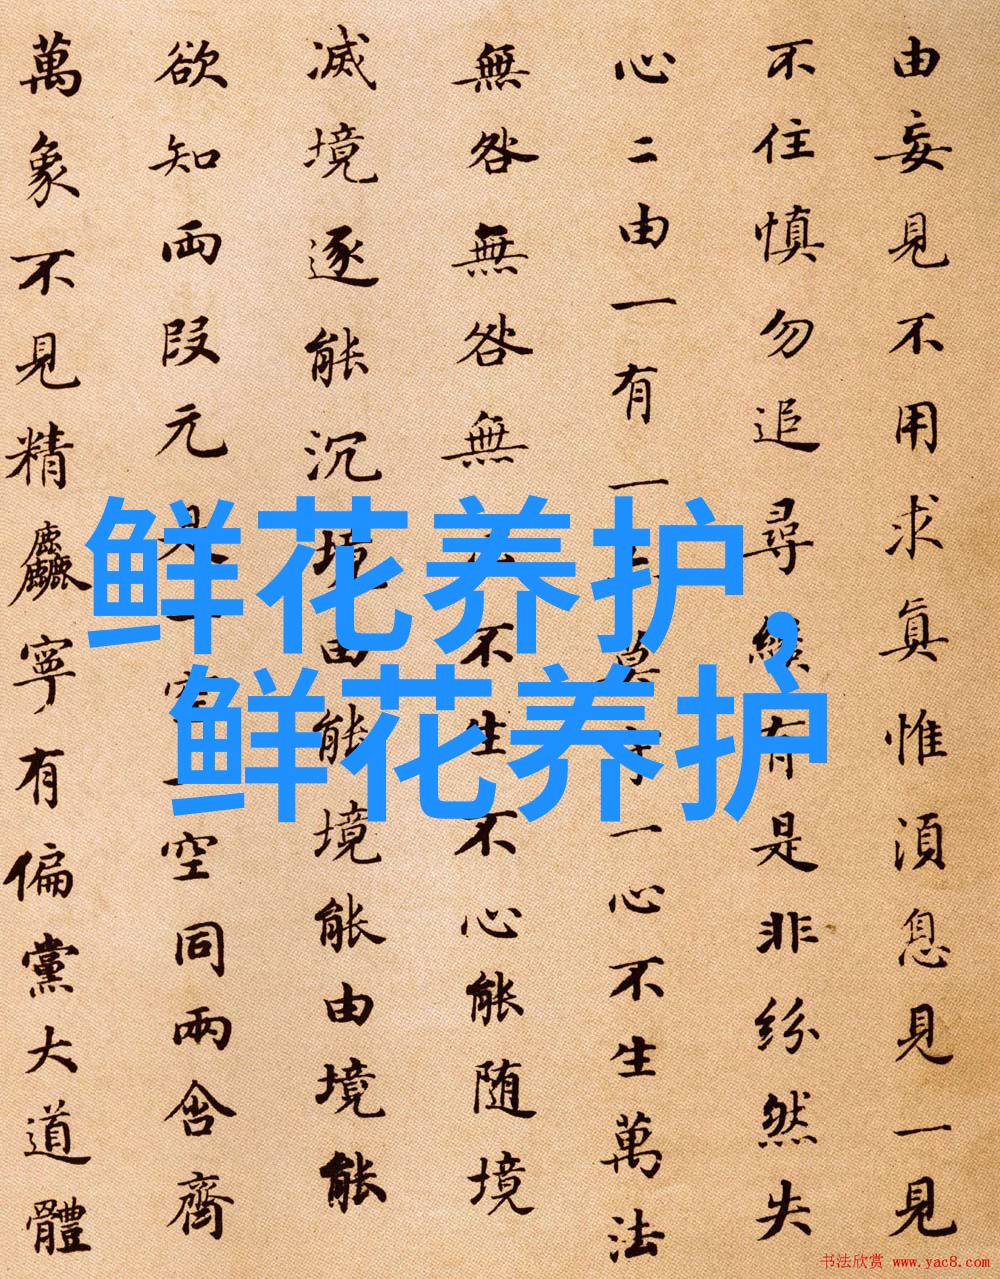 由妄見不用求真惟湏息見一見
不住慎勿追尋纔有是非紛然失
心二由一有一莫守一心不生萬法
無咎無咎無不生不心能随境
滅境逐能沉境由能境能由境能
欲知兩段元是一空一空同兩含齊
萬象不見精麤寧有偏黨大道體
鲜花养护，
鲜花养护
书法欣赏 www.yac8.com